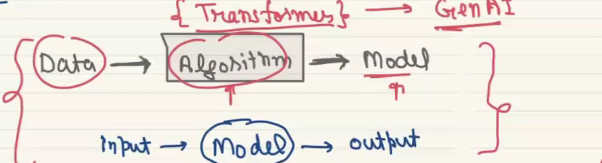 {Transformer} → GenAI
Data → Algorithm → Model
input → Model → output